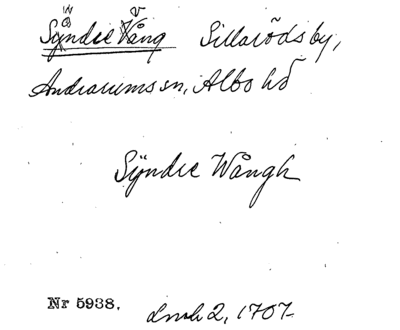 Syndre Vång Sillaröds by,
Andrarums sn, Albo hd
Sÿndre Wångh
Nr 5938. 2, 1707